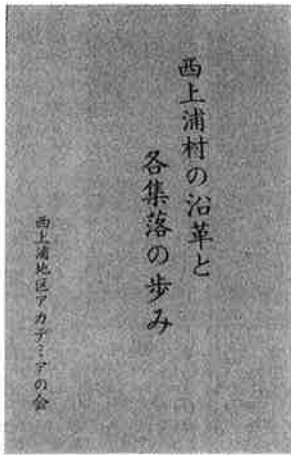 西上浦村の沿革と
各集落の歩み
西上浦地区アカデミアの会